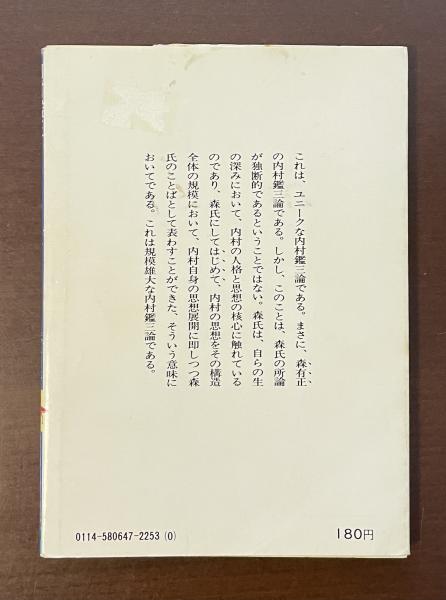 これは、ユニークな内村鑑三論である。まさに、森有正
の内村鑑三論である。しかし、このことは、森氏の所論
が独断的であるということではない。森氏は、自らの生
の深みにおいて、内村の人格と思想の核心に触れている
のであり、森氏にしてはじめて、内村の思想をその構造
全体の規模において、内村自身の思想展開に即しつつ森
氏のことばとして表わすことができた、そういう意味に
おいてである。これは規模雄大な内村鑑三論である。
0114-580647-2253 (0)
180円